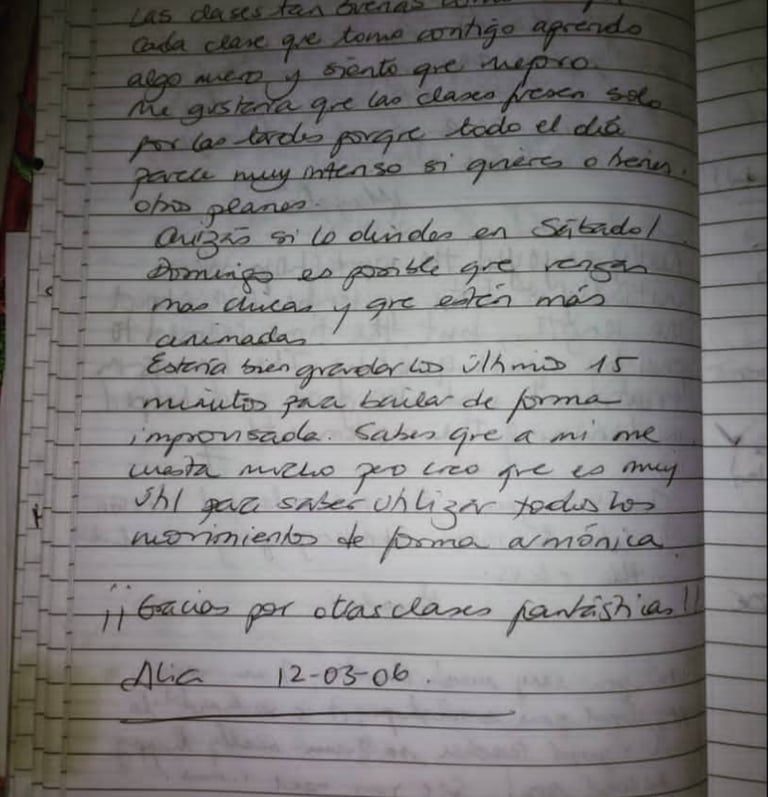 Las clases tan buenas como
Cada clase que tomo contigo aprendo
algo nuevo y siento que mejoro.
Me gustaría que las clases fuesen solo
por las tardes porque todo el día
parece muy intenso si quieres o tienes
otros planes.
Quizás si lo divides en Sábado/
Domingo es posible que vengan
mas chicas y que estén más
animadas
Estaría bien guardar los últimos 15
minutos para bailar de forma
improvisada. Sabes que a mi me
cuesta mucho pero creo que es muy
útil para saber utilizar todos los
movimientos de forma armónica
¡¡Gracias por otras clases fantásticas!!
Alia 12-03-06.